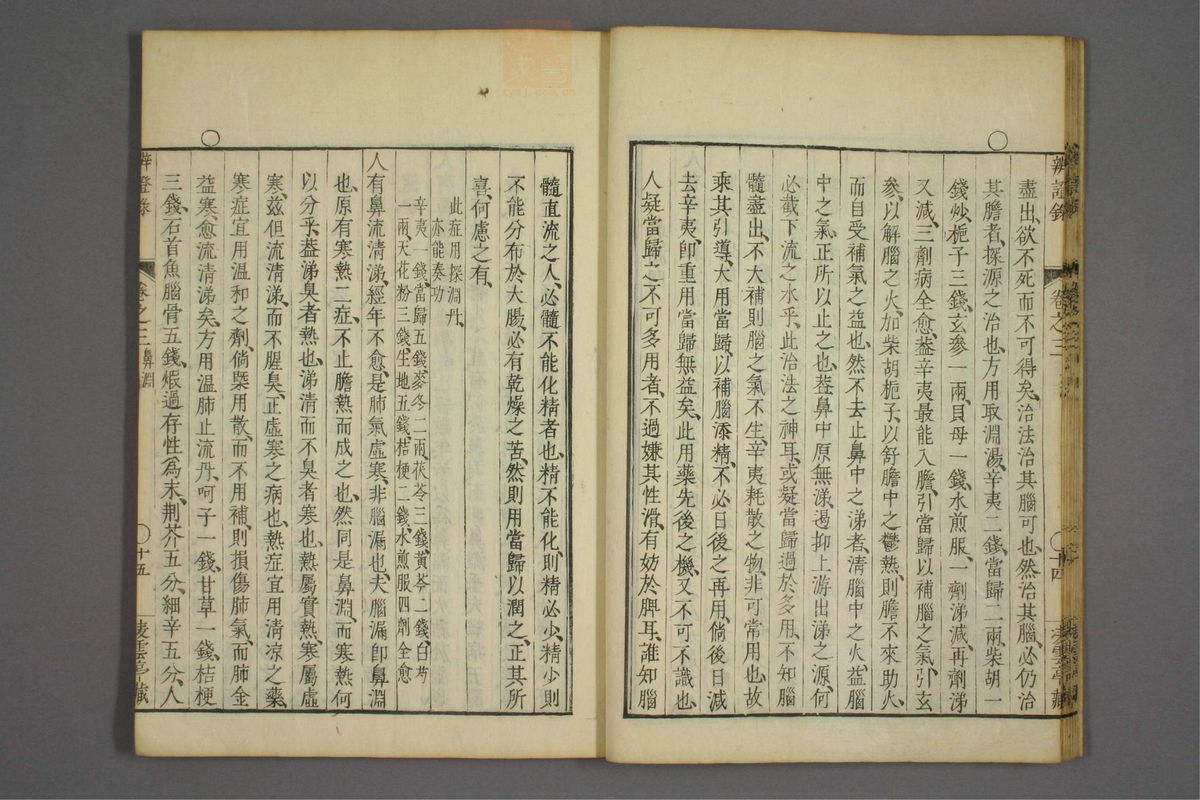 盡出、欲不死而不可得矣、治法治其腦可也、然治其腦、必仍治
其膽者、探源之治也、方用取淵湯、辛夷二錢、當歸二兩、柴胡一
錢、炒梔子三錢、玄參一兩、貝母一錢、水煎服、一劑涕減、再劑涕
又減、三劑病全愈、葢辛夷最能入膽、引當歸以補腦之氣、引玄
參、以解腦之火、加柴胡梔子、以舒膽中之鬱熱、則膽不來助火、
而自受補氣之益也、然不去止鼻中之涕者、清腦中之火、益腦
中之氣、正所以止之也、葢鼻中原無涕、遏抑上游出涕之源、何
必截下流之水乎、此治法之神耳、或疑當歸過於多用、不知腦
髓盡出、不大補則腦之氣不生、辛夷耗散之物、非可常用也、故
乘其引導、大用當歸、以補腦添精、不必日後之再用、倘後日減
去辛夷、卽重用當歸無益矣、此用藥先後之機、又不可不識也、
人疑當歸之不可多用者、不過嫌其性滑、有妨於脾耳、誰知腦
辨證錄
卷之三
十四
髓直流之人、必髓不能化精者也、精不能化、則精必少、精少則
不能分布於大腸、必有乾燥之苦、然則用當歸以潤之、正其所
喜、何慮之有、
此症用探淵丹、
亦能奏功
辛夷一錢、當歸五錢、麥冬二兩、茯苓三錢、黃芩二錢、白芍
一兩、天花粉三錢、生地五錢、桔梗二錢、水煎服四劑全愈
人有鼻流清涕、經年不愈、是肺氣虛寒、非腦漏也、夫腦漏卽鼻淵
也、原有寒熱二症、不止膽熱而成之也、然同是鼻淵、而寒熱何
以分乎、葢涕臭者熱也、涕清而不臭者寒也、熱屬實熱、寒屬虛
寒、兹但流清涕、而不腥臭、正虛寒之病也、熱症宜用清凉之藥、
寒症宜用温和之劑、倘槩用散、而不用補、則損傷肺氣、而肺金
益寒、愈流清涕矣、方用温肺止流丹、呵子一錢、甘草一錢、桔梗
三錢、石首魚腦骨五錢、煅過存性、爲末、荆芥五分、細辛五分、人
辨證錄
卷之三 鼻淵
十五
凌雲亭藏